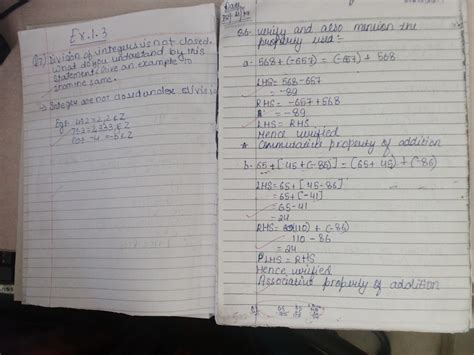 Ex. 1.3
Q7) Division of integers is not closed.
What do you understand by this
statement. Give an example to
show the same.
→ Integer are not closed under
Eg:
Q6. verify and also mention the
property used:-
a. 568 + (-657) = (-657) + 568
LHS = 568 - 657
= -89
RHS = -657 + 568
= -89
LHS = RHS
Hence verified
* Commutative property of addition
b. 65 + [45 + (-86)] = (65 + 45) + (-86)
LHS = 65 + [45 - 86]
= 65 + [-41]
= 65 - 41
= 24
RHS = (110) + (-86)
= 110 - 86
= 24
LHS = RHS
Hence verified
Associative property of addition